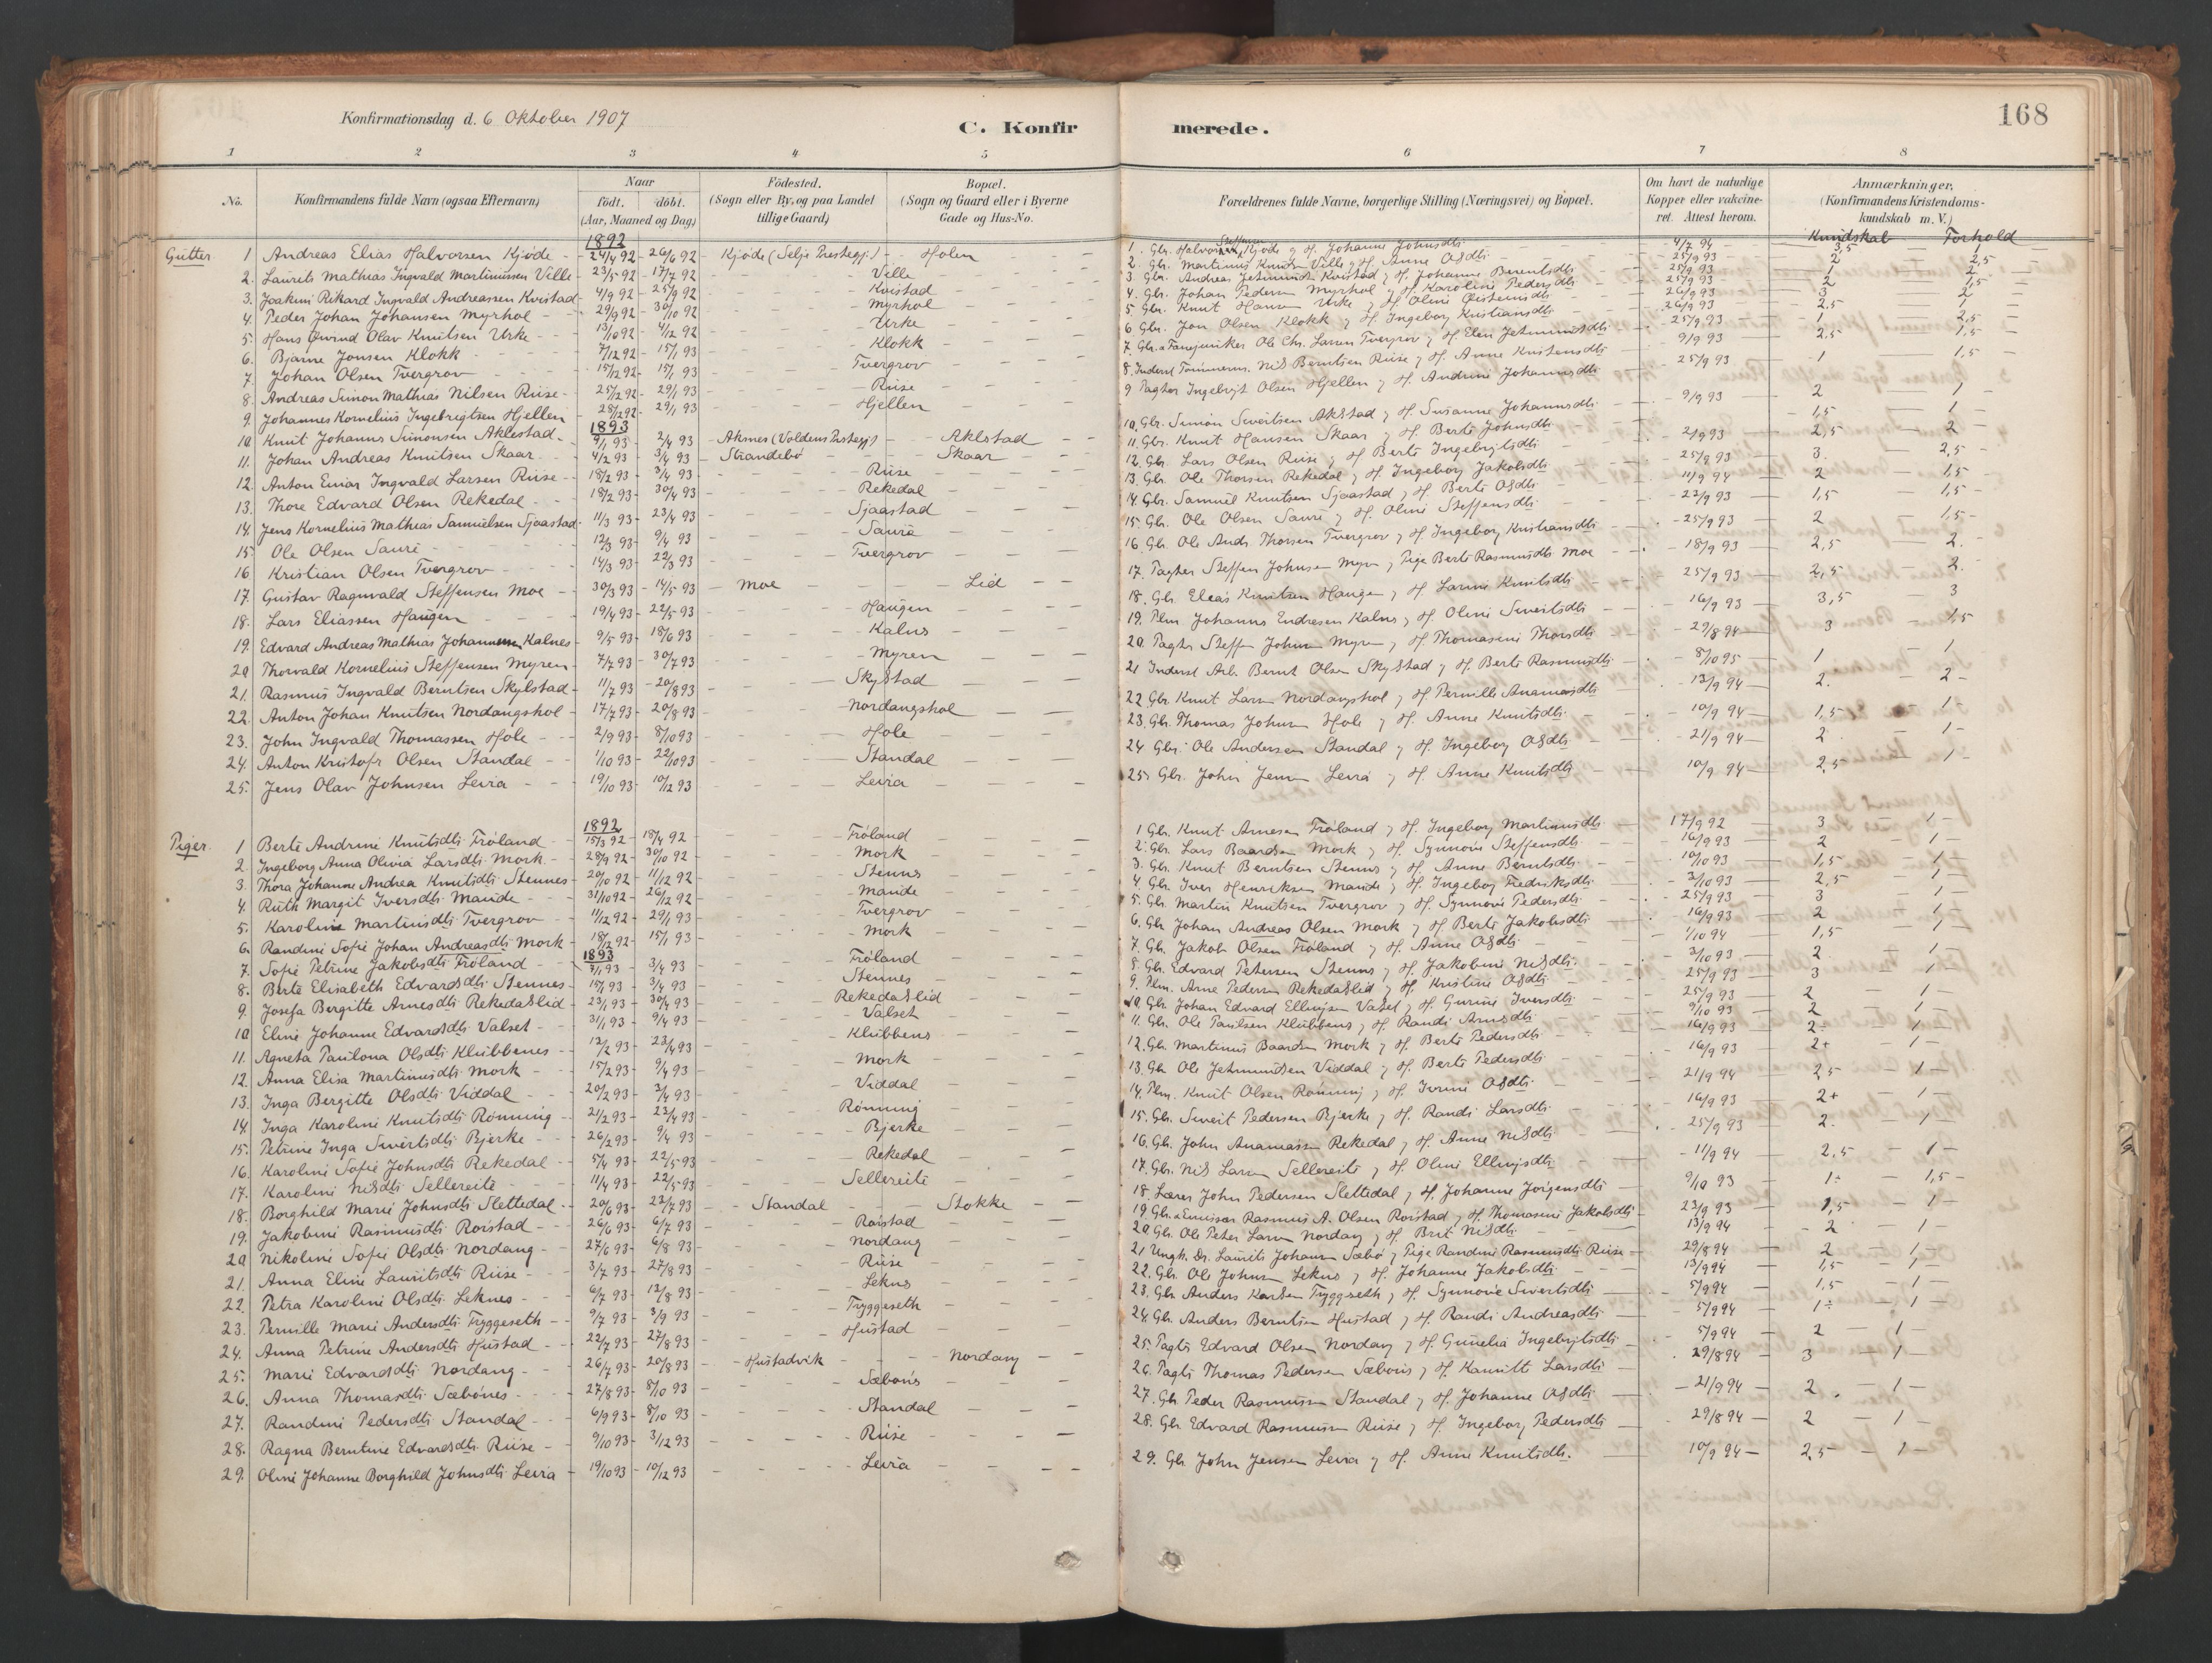 Konfirmationsdag d. 6 Oktober 1907
C. Konfirmerede.
168
1 2 3 4 5 6 7 8
No. Konfirmandens fulde Navn (ogsaa Efternavn) Naar født. døbt. (Aar, Maaned og Dag) Fødested. (Sogn eller By, og paa Landet tillige Gaard) Bopæl. (Sogn og Gaard eller i Byerne Gade og Hus-No. Forældrenes fulde Navne, borgerlige Stilling (Næringsvei) og Bopæl. Om havt de naturlige Kopper eller vaccineret. Attest herom. Anmærkninger, (Konfirmandens Kristendomskundskab m. V.)
Kundskab Forhold
1892
Gutter 1 Andreas Elias Halvorsen Kjøde 24/4 92 26/6 92 Kjøde (Selje Prestegj.) Holen
2. Laurits Mathias Ingvald Martinussen Velle 23/5 92 17/7 92 Velle
3. Joakim Rikard Ingvald Andreassen Kvistad 4/9 92 25/9 92 Kvistad
4. Peder Johan Johansen Myrhol 29/9 92 30/10 92 Myrhol
5. Hans Øivind Olav Knutsen Urke 13/10 92 4/12 92 Urke
6. Bjarne Jonsen Klokk 7/12 92 15/1 93 Klokk
7. Johan Olsen Tvergrov 15/12 92 15/1 93 Tvergrov
8. Andreas Simon Mathias Nilsen Riise 25/12 92 29/1 93 Riise
9. Johannes Kornelius Ingebrigtsen Hjellen 28/12 92 29/1 93 Hjellen
1893
10 Knut Johannes Simonsen Aklestad 9/1 93 2/4 93 Aksnes (Voldens Prestegj) Aklstad
11. Johan Andreas Knutsen Skaar 4/2 93 3/4 93 Strandebø Skaar
12. Anton Einar Ingvald Larsen Riise 18/2 93 3/4 93 Riise
13. Thore Edvard Olsen Rekedal 18/2 93 30/4 93 Rekedal
14. Jens Kornelius Mathias Samuelsen Sjaastad 11/3 93 23/4 93 Sjaastad
15 Ole Olsen Saure 12/3 93 9/4 93 Saure
16 Kristian Olsen Tvergrov 14/3 93 22/3 93 Tvergrov
17. Gustav Ragnvald Steffensen Moe 30/3 93 14/5 93 Moe Lid
18. Lars Eliassen Haugen 19/4 93 22/5 93 Haugen
19. Edvard Andreas Mathias Johannessen Kalnes 9/5 93 18/6 93 Kalns
20 Thorvald Kornelius Steffensen Myren 7/7 93 30/7 93 Myren
21. Rasmus Ingvald Berntsen Skylstad 11/7 93 20/8 93 Skylstad
22. Anton Johan Knutsen Nordangshol 17/7 93 20/8 93 Nordangshol
23. John Ingvald Thomassen Hole 2/9 93 8/10 93 Hole
24. Anton Kristofr Olsen Standal 1/10 93 22/10 93 Standal
25. Jens Olav Johnsen Leira 19/10 93 10/12 93 Leira
1892
Piger. 1 Berte Andrine Knutsdtr Frøland 15/3 92 18/4 92 Frøland
2. Ingeborg Anna Olivia Larsdtr. Mork 28/9 92 30/10 92 Mork
3. Thora Johanne Andrea Knutsdtr. Stennes 20/10 92 11/12 92 Stennes
4. Ruth Margit Iversdtr. Maude 31/10 92 26/12 92 Maude
5. Karoline Martinsdtr. Tvergrov 11/12 92 29/1 93 Tvergrov
6. Randine Sofie Johan Andreasdtr. Mork 18/12 92 15/1 93 Mork
1893
7. Sofie Petrine Jakobsdtr. Frøland 3/1 93 3/4 93 Frøland
8. Berte Elisabeth Edvardsdtr. Stennes 15/1 93 3/4 93 Stennes
9. Josefa Bergitte Arnesdtr. Rekedalslid 23/1 93 30/4 93 Rekedalslid
10 Eline Johanne Edvardsdtr. Valset 31/1 93 9/4 93 Valset
11. Agneta Paulona Olsdtr. Klubbenes 12/2 93 23/4 93 Klubbens
12. Anna Elisa Martinusdtr. Mork 15/2 93 9/4 93 Mork
13. Inga Bergitte Olsdtr. Viddal 20/2 93 3/4 93 Viddal
14. Inga Karoline Knutsdtr. Rønning 21/2 93 23/4 93 Rønning
15. Petrine Inga Sivertsdtr. Bjerke 26/2 93 9/4 93 Bjerke
16. Karoline Sofie Johnsdtr. Rekedal 5/4 93 22/5 93 Rekedal
17. Karoline Nilsdtr. Sellereite 11/4 93 22/5 93 Sellereite
18. Borghild Marie Johnsdtr. Slettedal 20/6 93 23/7 93 Standal Stokke
19. Jakobine Rasmusdtr. Roistad 26/6 93 6/7 93 Roistad
20 Nikoline Sofie Olsdtr. Nordang 27/6 93 6/8 93 Nordang
21. Anna Eline Lauritsdtr. Riise 3/7 93 27/8 93 Riise
22. Petra Karoline Olsdtr. Leknes 6/7 93 13/8 93 Lekns
23. Pernille Marie Andersdtr. Tryggeseth 9/7 93 3/9 93 Tryggeseth
24. Anna Petrine Andersdtr. Hustad 22/7 93 27/8 93 Hustad
25. Marie Edvardsdtr. Nordang 26/7 93 20/8 93 Hustadvik Nordang
26. Anna Thomasdtr. Sæbønes 27/8 93 8/10 93 Sæbøns
27. Randine Pedersdtr. Standal 6/9 93 8/10 93 Standal
28. Ragna Berntine Edvardsdtr. Riise 9/10 93 3/12 93 Riise
29. Oline Johanne Borghild Johnsdtr. Leira 19/10 93 10/12 93 Leira
1. Gbr. Halvor Steffensen Kjøde og H. Johanne Johnsdtr. 4/7 94 3,5 1
2. Gbr. Martinus Knutsen Velle og H. Anne Olsdtr. 25/9 93 2 2,5
3. Gbr. Andreas Jetmundsen Kvistad og H. Johanne Berentsdtr. 25/9 93 1 2
4. Gbr. Johan Pedersen Myrhol og H. Karoline Pedersdtr. 25/9 93 2 1,5
5 Gbr. Knut Hansen Urke og H. Oline Østensdtr. 26/9 93 3 2
6 Gbr. Jon Olsen Klokk og H. Ingeborg Kristiansdtr. 26/9 93 2,5 1
7. Ole Chr. Larsen Tvergrov og H. Elen Jetmundsdtr. 25/9 93 1 2,5
8. Inderst Tømmerm. Nils Berntsen Riise og H. Anne Knutsdtr. 9/9 93 2,5 1,5
9 Pagter Ingebrigt Olsen Hjellen og H. Andrine Johannsdtr. 25/9 93 1 1,5
10. Gbr. Simon Sivertsen Aklstad og H. Susanne Johannsdtr. 9/9 93 2 1
11. Gbr. Knut Hansen Skaar og H. Berte Johnsdtr. 1,5 1
12. Gbr. Lars Olsen Riise og H. Berte Ingebrigtsdtr. 2/9 93 2,5 2
13. Gbr. Ole Thorsen Rekedal og H. Ingeborg Jakobsdtr. 25/9 93 3. 2,5
14. Gbr. Samuel Knutsen Sjaastad og H. Berte Olsdtr. 11/9 94 2 1,5
15. Gbr. Ole Olsen Saure og H. Oline Steffensdtr. 22/9 93 1,5 1,5
16. Gbr. Ole Andr. Thorsen Tvergrov og H. Ingeborg Kristiansdtr. 25/9 93 2 1,5
17. Pagter Steffen Johnsen Myren og Pige Berte Rasmusdtr. Moe 18/9 93 2,5 2.
18. Gbr. Elias Knutsen Haugen og H. Larine Knutsdtr. 25/9 93 2,5 2.
19. Plm Johannes Endresen Kalns og H. Oline Sivertsdtr. 16/9 93 3,5 3
20. Pagter Steffen Johnsen Myren og H. Thomasine Thorsdtr. 29/8 94 3 1,5
21 Inderst Arb. Bernt Olsen Skylstad og H. Berte Rasmusdtr. 8/10 95 1 1
22 Gbr. Knut Larsen Nordangshol og H. Pernille Ananiasdtr. 13/9 94 2. 2
23. Gbr. Thomas Johnsen Hole og H. Anne Knutsdtr. 10/9 94 1,5 1
24 Gbr. Ole Andersen Standal og H. Ingeborg Olsdtr. 21/9 94 2 1
25. Gbr. John Jensen Leira og H. Anne Knutsdtr. 10/9 94 2,5 1
1 Gbr. Knut Arnesen Frøland og H. Ingeborg Martinusdtr. 17/9 92 3 1
2. Gbr. Lars Baardsen Mork og H. Synnøve Steffensdtr. 16/9 93 2 1
3. Gbr. Knut Berntsen Stenns og H. Anne Berntsdtr. 10/10 93 1,5 1
4. Gbr. Iver Henriksen Maude og H. Ingeborg Fredriksdtr. 3/10 93 2,5 1
5. Gbr. Martin Knutsen Tvergrov og H. Synnøve Pedersdtr. 25/9 93 3 1
6. Gbr. Johan Andreas Olsen Mork og H. Berte Jakobsdtr. 16/9 93 2 1
7. Gbr. Jakob Olsen Frøland og H. Anne Olsdtr. 1/10 94 1,5 1
8. Gbr. Edvard Petersen Stenns og H. Jakobine Nilsdtr. 3/10 93 2. 1
9. Plm. Arne Pedersen Rekedalslid og H. Kristine Olsdtr. 25/9 93 3 1
10. Gbr. Johan Edvard Ellingsen Valset og H. Gurine Iversdtr. 25/9 93 2 1
11. Gbr. Ole Paulsen Klubbens og H. Randi Arnsdtr. 9/10 93 2 1
12. Gbr. Martinus Baardsen Mork og H. Berte Pedersdtr. 16/9 93 2÷ 1
13. Gbr. Ole Jetmundsen Viddal og H. Berte Pedersdtr. 16/9 93 2+ 1
14. Plm. Knut Olsen Rønning og H. Ivrine Olsdtr. 21/9 94 2,5 1
15. Gbr. Sivert Pedersen Bjerke og H. Randi Larsdtr. 16/9 93 2+ 1
16. Gbr. John Ananiassen Rekedal og H. Anne Nilsdtr. 25/9 93 2. 1
17. Gbr. Nils Larsen Sellereite og H. Oline Ellingsdtr. 11/9 94 2,5 1
18. Lærer John Pedersen Slettedal og H. Johanne Jørgensdtr. 9/10 93 1÷ 1,5
19 Gbr. & Emissær Rasmus A. Olsen Roistad og H. Thomasine Jakobsdtr. 23/9 93 1,5 1
20. Gbr. Ole Peter Larsen Nordang og H. Brit Nilsdtr. 13/9 94 2 1
21 Ungk. Dr. Laurits Johansen Sæbø og Pige Randine Rasmusdtr. Riise 29/8 94 2 1
22. Gbr. Ole Johnsen Lekns og H. Johanne Jakobsdtr. 13/9 94 1,5 1
23. Gbr. Anders Karlsen Tryggseth og H. Synnøve Sivertsdtr. 5/9 94 1,5 1
24. Gbr. Anders Berntsen Hustad og H. Randi Andreasdtr. 5/9 94 1÷ 1
25. Pagter Edvard Olsen Nordang og H. Gunelia Ingebrigtsdtr. 5/9 94 2 1
26. Pagter Thomas Pedersen Sæbøns og H. Kanutte Larsdtr. 29/8 94 3 1
27. Gbr. Peder Rasmussen Standal og H. Johanne Olsdtr. 21/9 94 2. 1
28. Gbr. Edvard Rasmussen Riise og H. Ingeborg Pedersdtr. 29/8 94 2 1
29. Gbr. John Jensen Leira og H. Anne Knutsdtr. 10/9 94 2,5 1